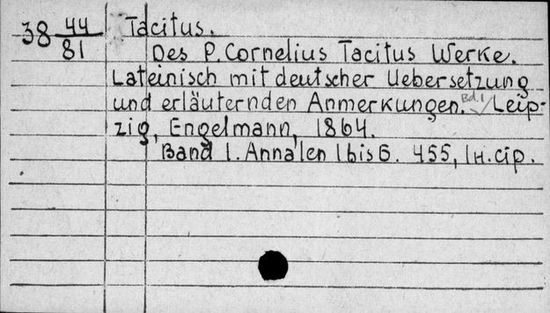 38 44/81 Tacitus.
Des P. Cornelius Tacitus Werke.
Lateinisch mit deutscher Uebersetzung
und erläuternden Anmerkungen. Bd. 1 Leip-
zig, Engelmann, 1864.
Band 1. Annalen 1 bis 6. 455, 1 н. стр.